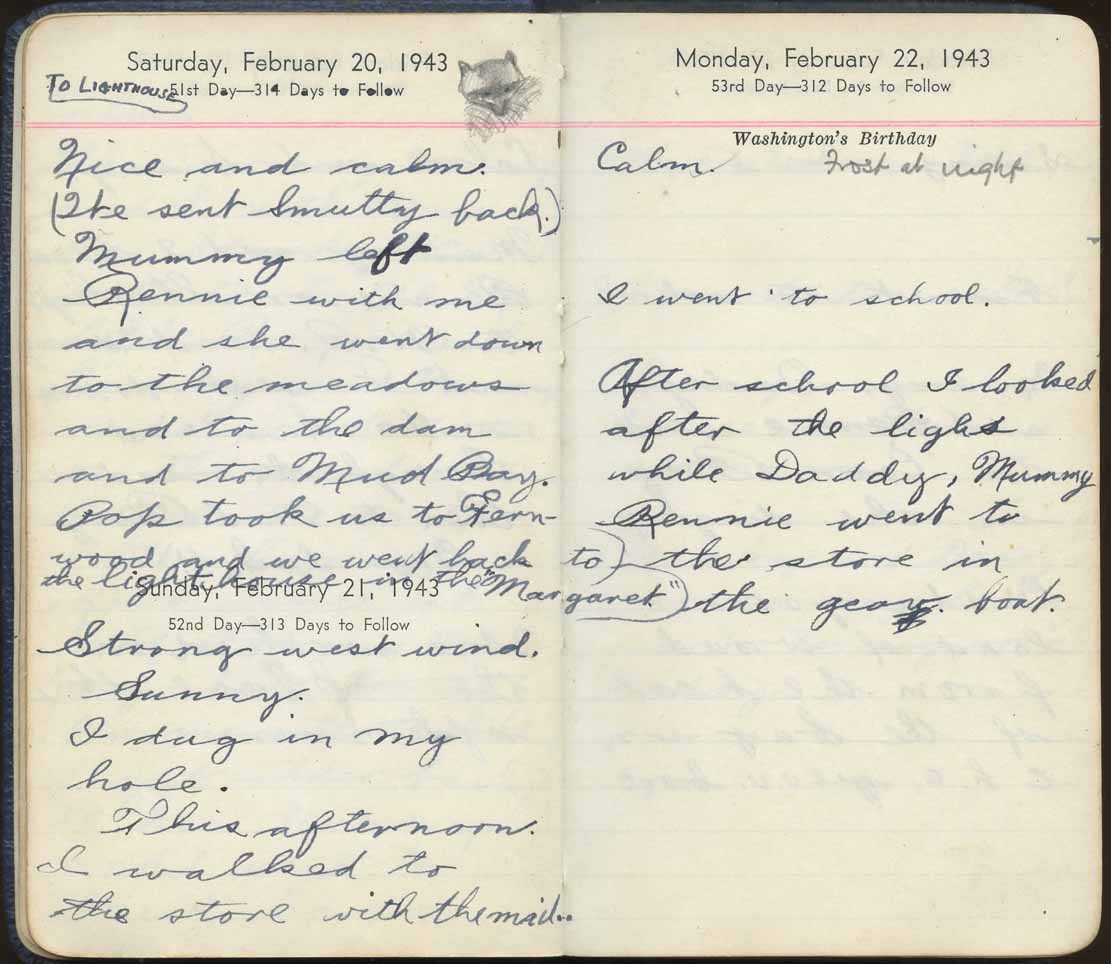 Saturday, February 20, 1943
To Lighthouse
51st Day—314 Days to Follow
Nice and calm.
(Ike sent Smutty back.)
Mummy left
Rennie with me
and she went down
to the meadows
and to the dam
and to Mud Bay.
Pop took us to Fern-
wood and we went back to)
the lighthouse in the "Margaret")
Sunday, February 21, 1943
52nd Day—313 Days to Follow
Strong west wind.
Sunny.
I dug in my
hole.
This afternoon.
I walked to
the store with the mail..
Monday, February 22, 1943
53rd Day—312 Days to Follow
Washington's Birthday
Calm. Frost at night
I went to school.
After school I looked
after the light
while Daddy, Mummy
Rennie went to
the store in
the boat.